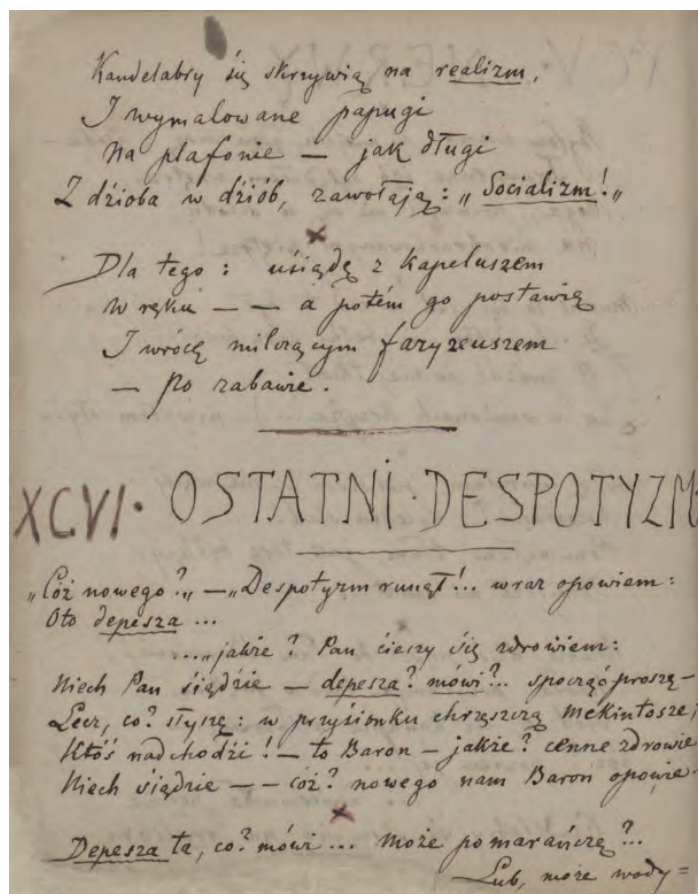 Kandelabry się skrzywią na realizm,
I wymalowane papugi
Na plafonie — jak długi
Z dźioba w dźiób, zawołają: „Socializm!„
×
Dla tego: usiądę z kapeluszem
W ręku — — a potém go postawię
I wrócę milczącym faryzeuszem
— Po zabawie.
XCVI. OSTATNI·DESPOTYZM
„Cóż nowego?„ —„Despotyzm runął!... wraz opowiem:
Oto depesza ...
...„jakże? Pan cieszy się zdrowiem:
Niech Pan siądzie — depesza? mówi?.. spocząć proszę —
Lecz, co? słyszę: w przysionku chrzęszczą mekintosze;
Któś nadchodźi! — to Baron — jakże? cenne zdrowie
Niech śiądzie — — cóż? nowego nam Baron opowie.
×
Depesza ta, co? mówi ... może pomarańczę?..
Lub, może wody =